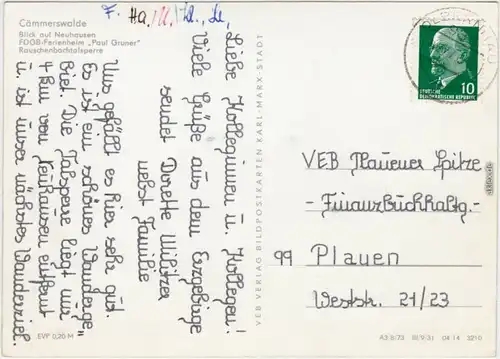 Cämmerswalde
Blick auf Neuhausen
FDGB-Ferienheim „Paul Gruner“
Rauschenbachtalsperre
F. Ha./
Liebe Kolleginnen u. Kollegen!
Viele Grüße aus dem Erzgebirge
sendet Dorette Militzer
nebst Familie
Uns gefällt es hier sehr gut.
Es ist ein schönes Wanderge-
biet. Die Talsperre liegt nur
4 km von Neuhausen entfernt
u. ist unser nächstes Wanderziel.
EVP 0,20 M
VEB VERLAG BILDPOSTKARTEN KARL-MARX-STADT
DEUTSCHE
DEMOKRATISCHE REPUBLIK
10
VEB Plauener Spitze
- Finanzbuchhaltg. -
99 Plauen
Weststr. 21/23
A3 B/73 III/9-31 04 14 3210